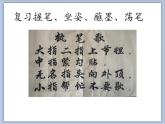 复习握笔、坐姿、蘸墨、荡笔
执笔歌
大指二指上节捏
中指帮忙向下勾
无名指甲往外顶
小指